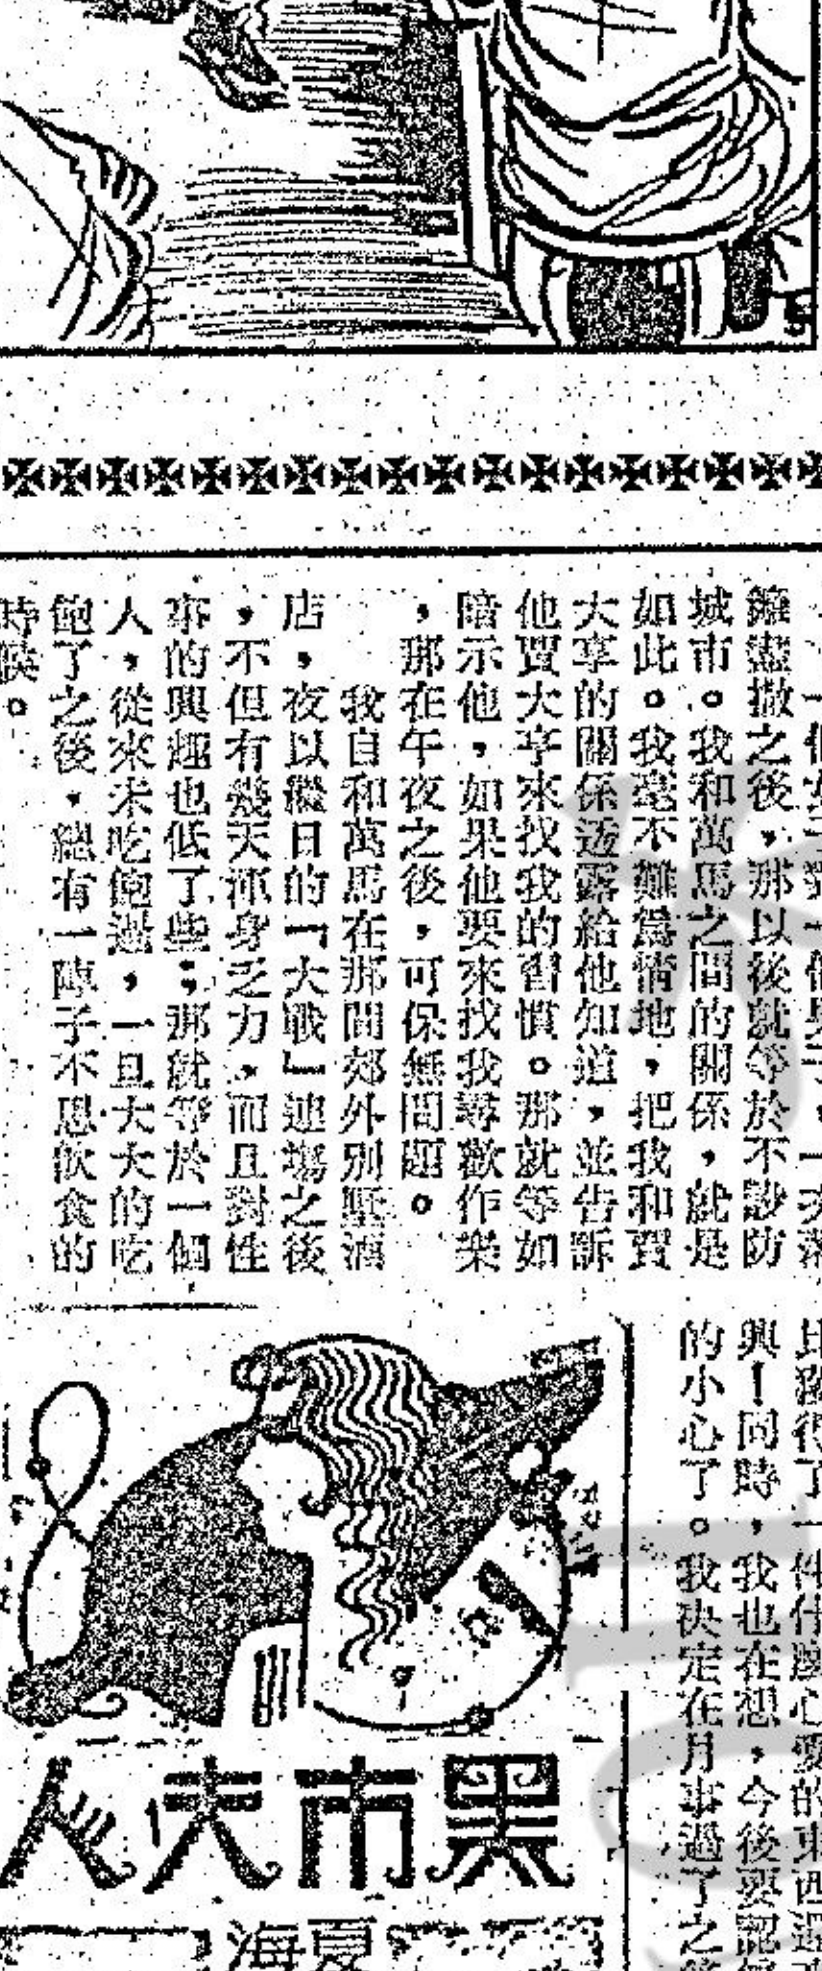 藩盡撤之後，那以後就等於不設防
城市。我和萬馬之間的關係，就是
如此。我毫不難爲情地，把我和賈
大亨的關係透露給他知道，並告訴
他賈大亨來找我的習慣。那就等如
暗示他，如果他要來找我尋歡作樂
，那在午夜之後，可保無問題。
我自和萬馬在那間郊外別墅酒
店，夜以繼日的「大戰」連塲之後
，不但有幾天渾身乏力，而且對性
事的興趣也低了些；那就等於一個
人，從來未吃飽過，一旦大大的吃
飽了之後，總有一陣子不思飲食的
時候。
得了一件什麽心愛的東西還
興！同時，我也在想，今後要
的小心了。我决定在月事過了之
黑市夫人
夏
海